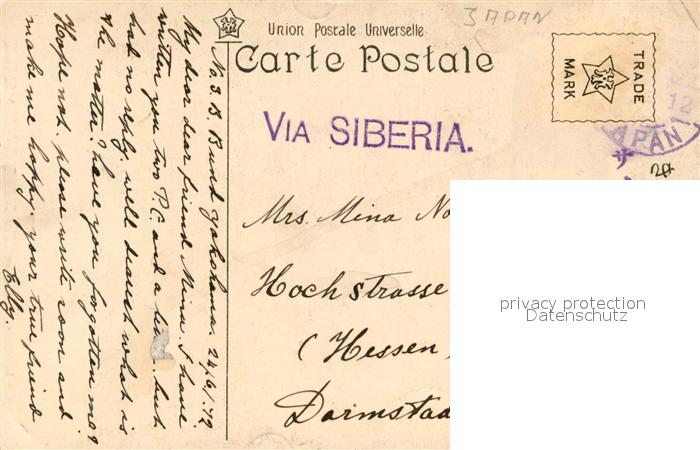 JAPAN
Union Postale Universelle
Carte Postale
TRADE
MARK
12
APAN
サ
VIA SIBERIA.
Mrs. Mina
Hochstrasse
(Hessen
Darmstad
privacy protection
Datenschutz
No 3. B. Bund Yokohama. 24/6/12
My dear dear friend Mina. I have
written you two P.C. and a but
had no reply. well dearest what is
the matter? have you forgotten me?
Hope not. please write soon and
make me happy. your true friend
Elly.